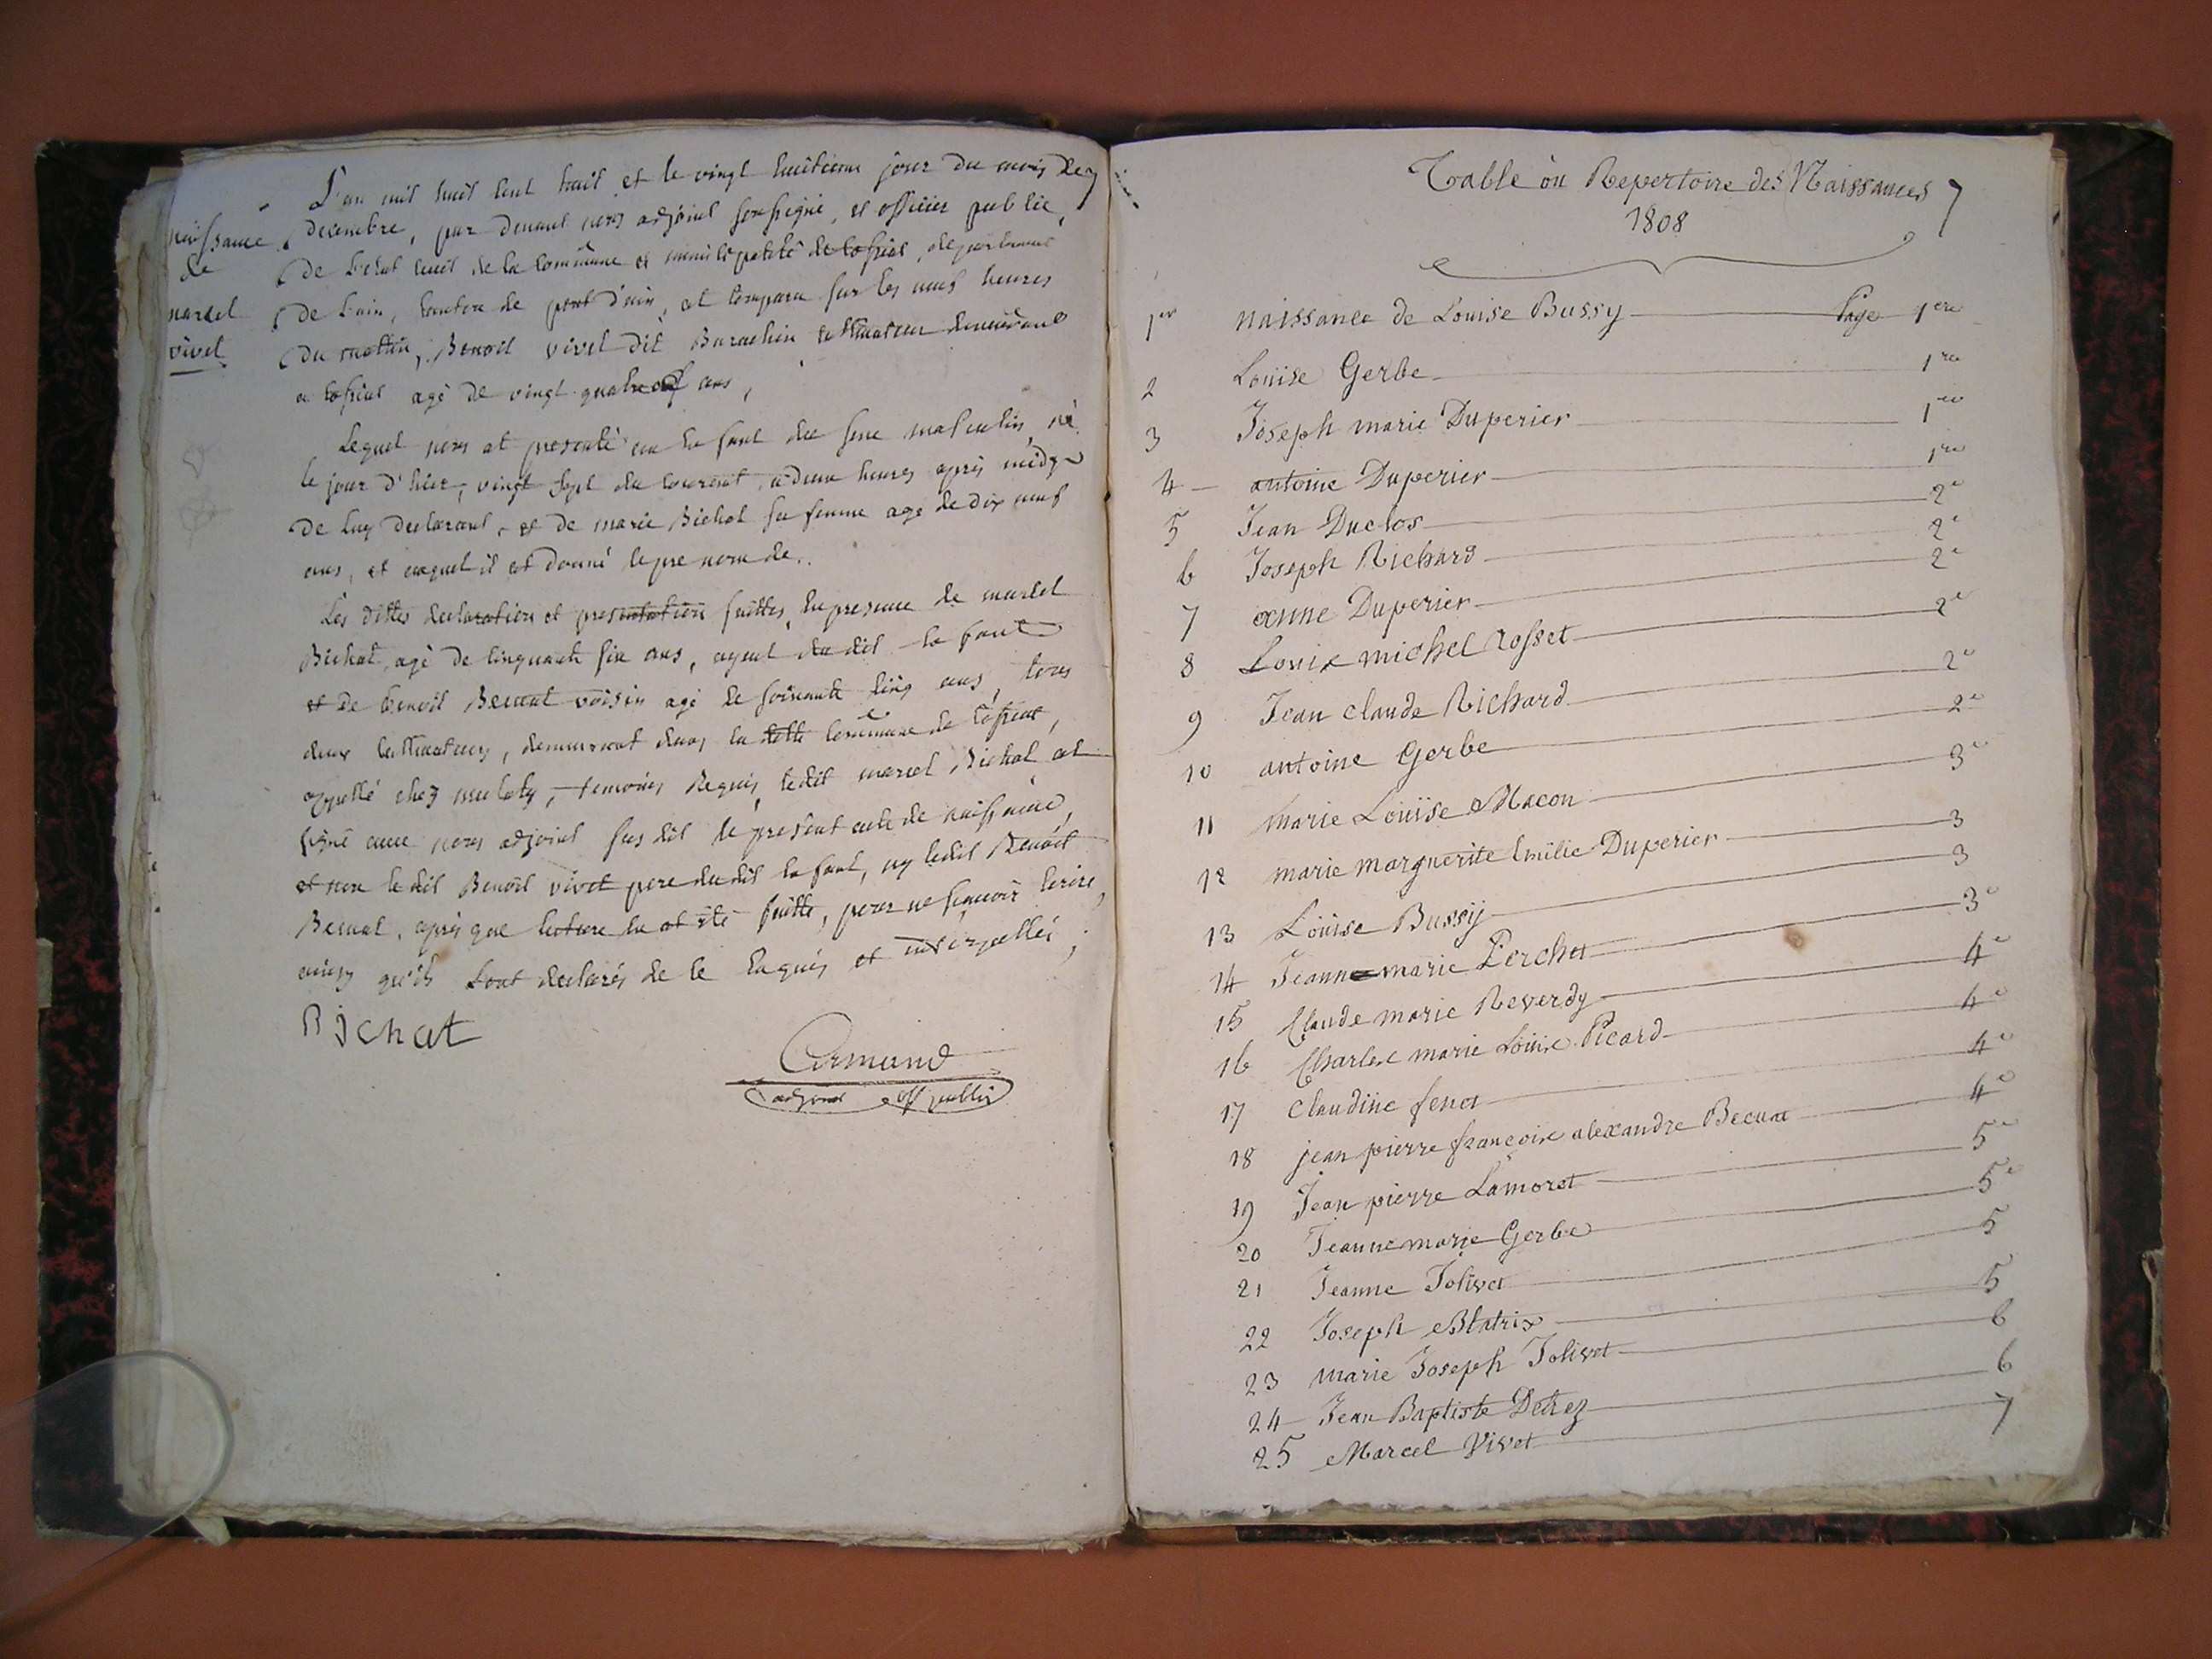 L'an mil huit cent huit et le vingt huitieme jour du mois de
naissance
de
marcel
vivet
decembre, par devant nous adjoint soussigné, et officier public,
de l'etat civil de la commune et municipalité de tossiat, departement
de l'ain, canton de pont d'ain, est comparu sur les neuf heures
du matin, Benoit vivet dit Barachin cultivateur demeurant
a tossiat agé de vingt quatre ans,
Lequel nous at presenté un enfant du sexe masculin, né
le jour d'hier, vingt sept du courant, a deux heures après midy
de luy declarant, et de marie Bichat sa femme agé de dix neuf
ans, et auquel il at donné le prenom de..
Les dittes declaration et presentation faittes, en presence de marcel
Bichat, agé de cinquante six ans, ayeul dudit enfant
et de benoit Becuat voisin agé de soixante cinq ans, tous
deux cultivateurs, demeurant dans la ditte commune de tossiat,
appellé chez, temoins Requis, ledit marcel Bichat at
signé avec nous adjoint susdit le present acte de naissance,
et non ledit Benoit vivet pere dudit enfant, ny ledit Benoit
Becuat, après que lecture en at été faitte, pour ne sçavoir écrire,
ainsy qu'ils l'ont declarés de ce enquis et interpellés;
Bichat
Armand
adjoint off public
7
Table ou Repertoire des Naissances
1808
1er naissance de Louise Bussy Page 1ere
2 Louise Gerbe 1re
3 Joseph marie Duperier 1re
4 antoine Duperier 1re
5 Jean Duclos 2e
6 Joseph Richard 2e
7 anne Duperier 2e
8 Louis michel Rosset 2e
9 Jean claude Richard 2e
10 antoine Gerbe 2e
11 Marie Louise Macon 3e
12 marie marguerite Emilie Duperier 3
13 Louise Bussy 3
14 Jeanne marie Perchet 3e
15 Claude marie Reverdy 4e
16 Charles marie Louis Picard 4e
17 Claudine fenet 4e
18 jean pierre françois alexandre Becuat 4e
19 Jean pierre Lamoret 5e
20 Jeanne marie Gerbe 5e
21 Jeanne Jolivet 5
22 Joseph Blatrix 5
23 marie Joseph Jolivet 6
24 Jean Baptiste Detrez 6
25 Marcel Vivet 7